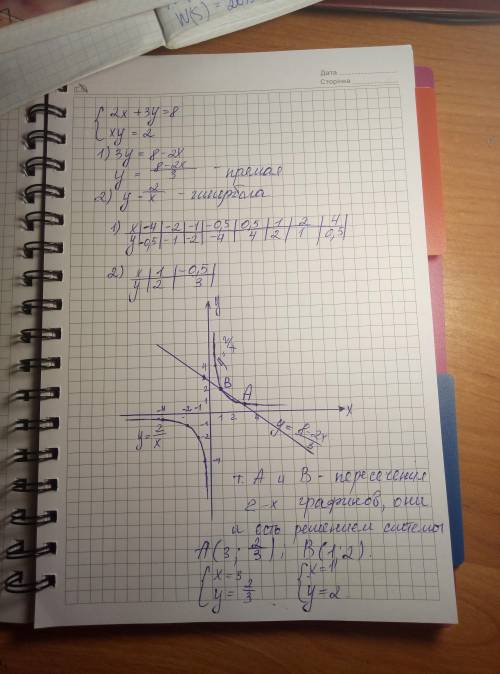 W(S) = 20
Дата
Сторінка
{ 2x + 3y = 8
xy = 2
1) 3y = 8 - 2x
y = (8 - 2x)/3 - прямая
2) y = 2/x - гипербола
1) x | -4 | -2 | -1 | -0,5 | 0,5 | 1 | 2 | 4
y | -0,5 | -1 | -2 | -4 | 4 | 2 | 1 | 0,5
2) x | 1 | -0,5
y | 2 | 3
y
4
2
1
B
A
-4 -2 -1
1 2 4
x
-1
-2
-4
y = 2/x
y = (8 - 2x)/3
т. A и B - пересечения
2-х графиков, они
и есть решением системы
A(3; 2/3); B(1; 2).
{ x = 3 { x = 1
y = 2/3 y = 2